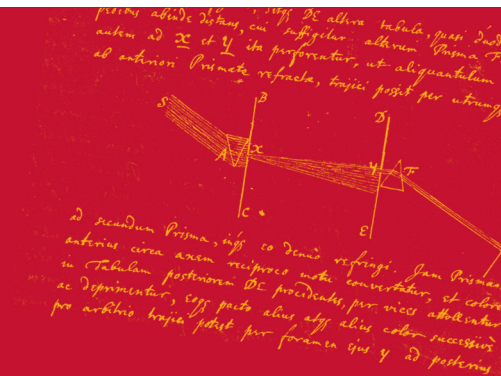 abinde distans, cui suffigitur alterum Prisma F
autem ad x et y ita perforentur, ut aliquantulum
ab anteriori Prismate refracta, trajici possit per utrumq
S
B
D
A
x
y
F
C
E
ad secundum Prisma, inq eo denuo refringi. Jam Prisma
anterius circa axem reciproco motu convertatur, et colores
in Tabulam posteriorem DE procidentes, per vices attollentur
ac deprimentur, eoq pacto alius atq alius color successivè
pro arbitrio trajici potest per foramen ejus y ad posterius